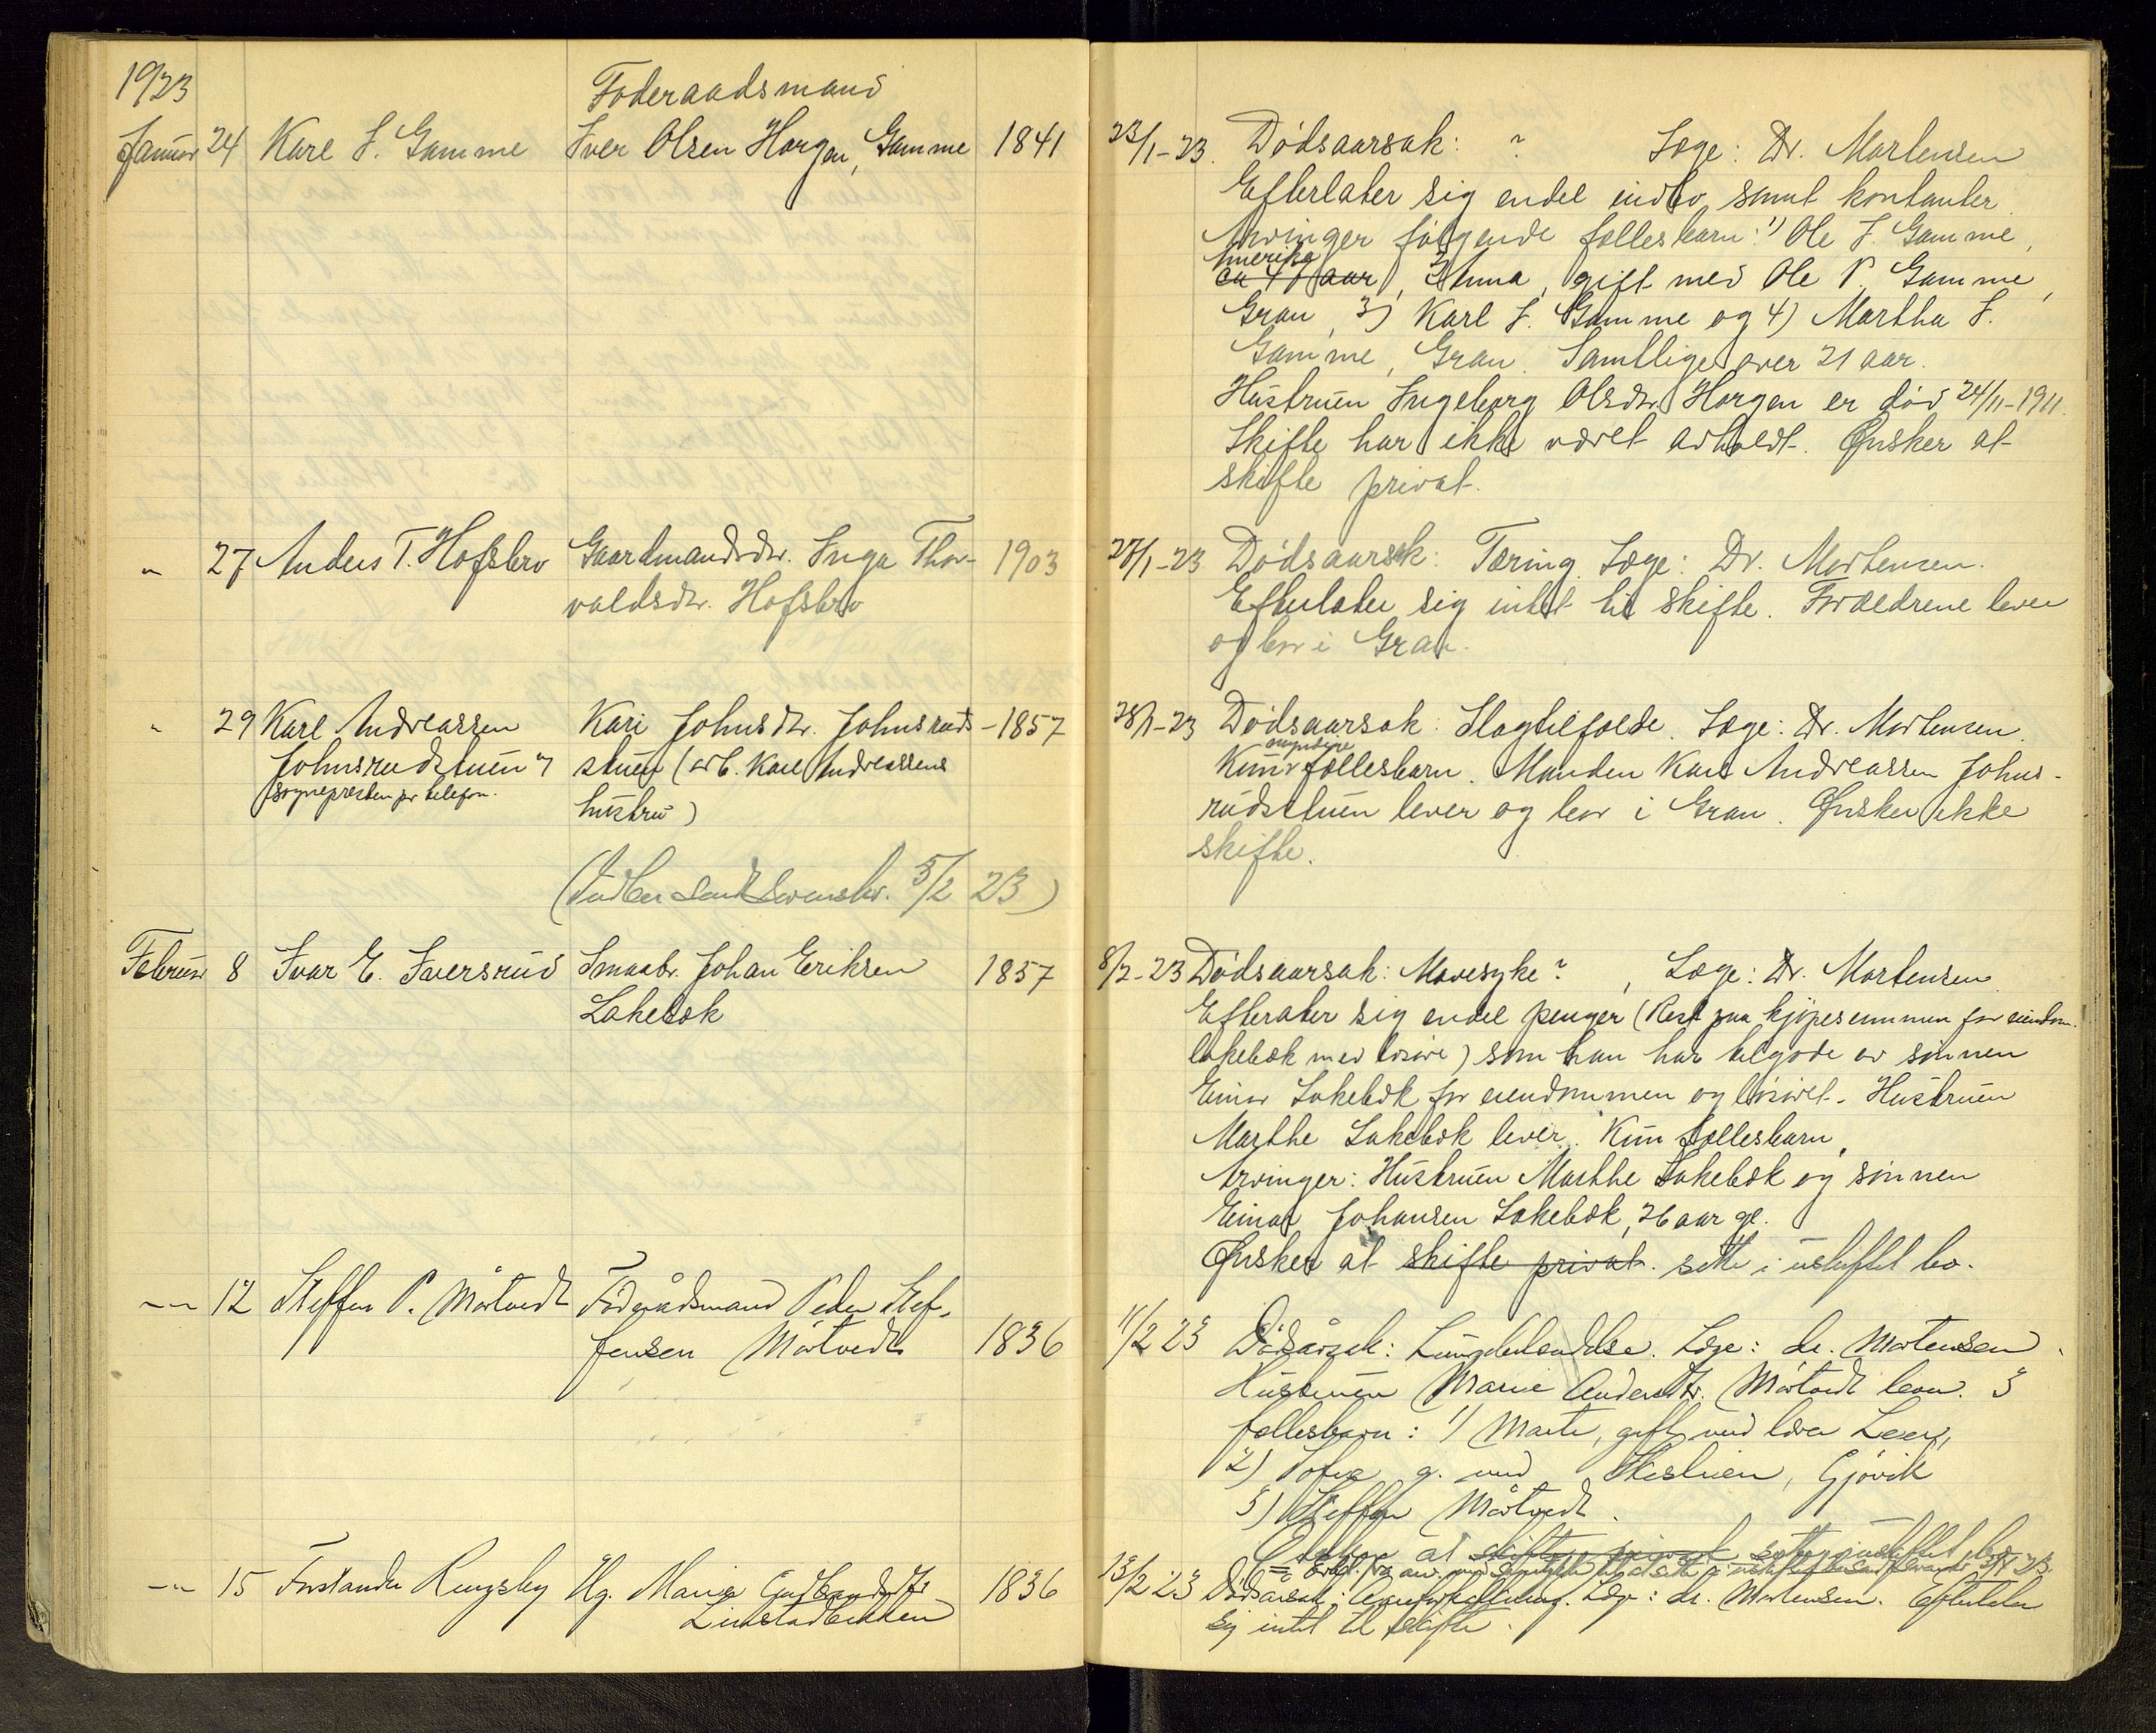 1923
Foderaadsmand
Januar 24 Karl I. Gamme Iver Olsen Horgen, Gamme 1841
23/1-23. Dødsaarsak: ? Læge: Dr. Mortensen
Efterlater sig endel indbo samt kontanter.
Arvinger følgende fællesbarn: 1) Ole I. Gamme,
Amerika
ca 47 aar, 2 Anna, gift med Ole P. Gamme,
Gran, 3) Karl I. Gamme og 4) Martha I.
Gamme, Gran. Samtlige over 21 aar.
Hustruen Ingeborg Olsdtr. Horgen er død 24/11-1911.
Skifte har ikke været avholdt. Ønsker at
skifte privat.
" 27 Anders T. Hofsbro Gaardmandsdtr. Inga Thor- 1903
valdsdtr. Hofsbro
27/1-23 Dødsaarsak: Tæring. Læge: Dr. Mortensen.
Efterlater sig intet til skifte. Forældrene lever
og bor i Gran.
" 29 Karl Andreassen Kari Johnsdtr. Johnsruds- 1857
Johnsrudstuen stuen (arb. Karl Andreassens
Sognepresten pr telefon. hustru)
28/1-23 Dødsaarsak: Slagtilfælde. Læge: Dr. Mortensen.
myndige
Kun fællesbarn. Manden Karl Andreassen Johns-
rudstuen lever og bor i Gran. Ønsker ikke
skifte.
5/2 23)
Februar 8 Ivar E. Iversrud Smaabr. Johan Eriksen 1857
Lakebæk
8/2-23 Dødsaarsak: Mavesyke? , Læge: Dr. Mortensen.
Efterlater sig endel penger (Rest paa kjøpesummen for eiendom.
lakebæk med løsøre) som han har tilgode av sønnen
Einar Lakebæk for eiendommen og løsøret. Hustruen
Marthe Lakebæk lever. Kun fællesbarn.
Arvinger: Hustruen Marthe Lakebæk og sønnen
Einar Johansen Lakebæk, 26 aar gl.
Ønsker at skifte privat. sitte i uskiftet bo.
-"- 12 Steffen P. Måtvedt Föderådsmand Peder Stef-
fensen Måtvedt 1836
11/2 23 Dödsårsak: Lungebetændelse. Læge: dr. Mortensen.
Hustruen Marie Andersdtr. Måtvedt lever. 3
fællesbarn: 1) Marte, gift med Iver
2) Sofie g. med Skistuen, Gjövik
3) Steffen Måtvedt.
Önsker at skifte privat sitte i uskiftet bo
-"- 15 Forstander Ringsby Ug. Marie Gudbrandsdtr 1836
Linstadbakken
13/2 23 Dödsårsak: Åreforkalkning. Læge: dr. Mortensen. Efterlater
sig intet til skifte.